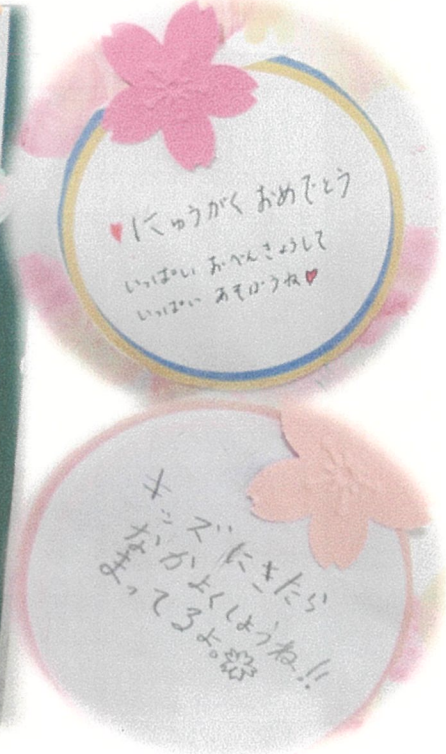 ♥にゅうがく おめでとう
いっぱい おべんきょうして
いっぱい あそぼうね♥
キッズにきたら
なかよくしようね!!
まってるよ。